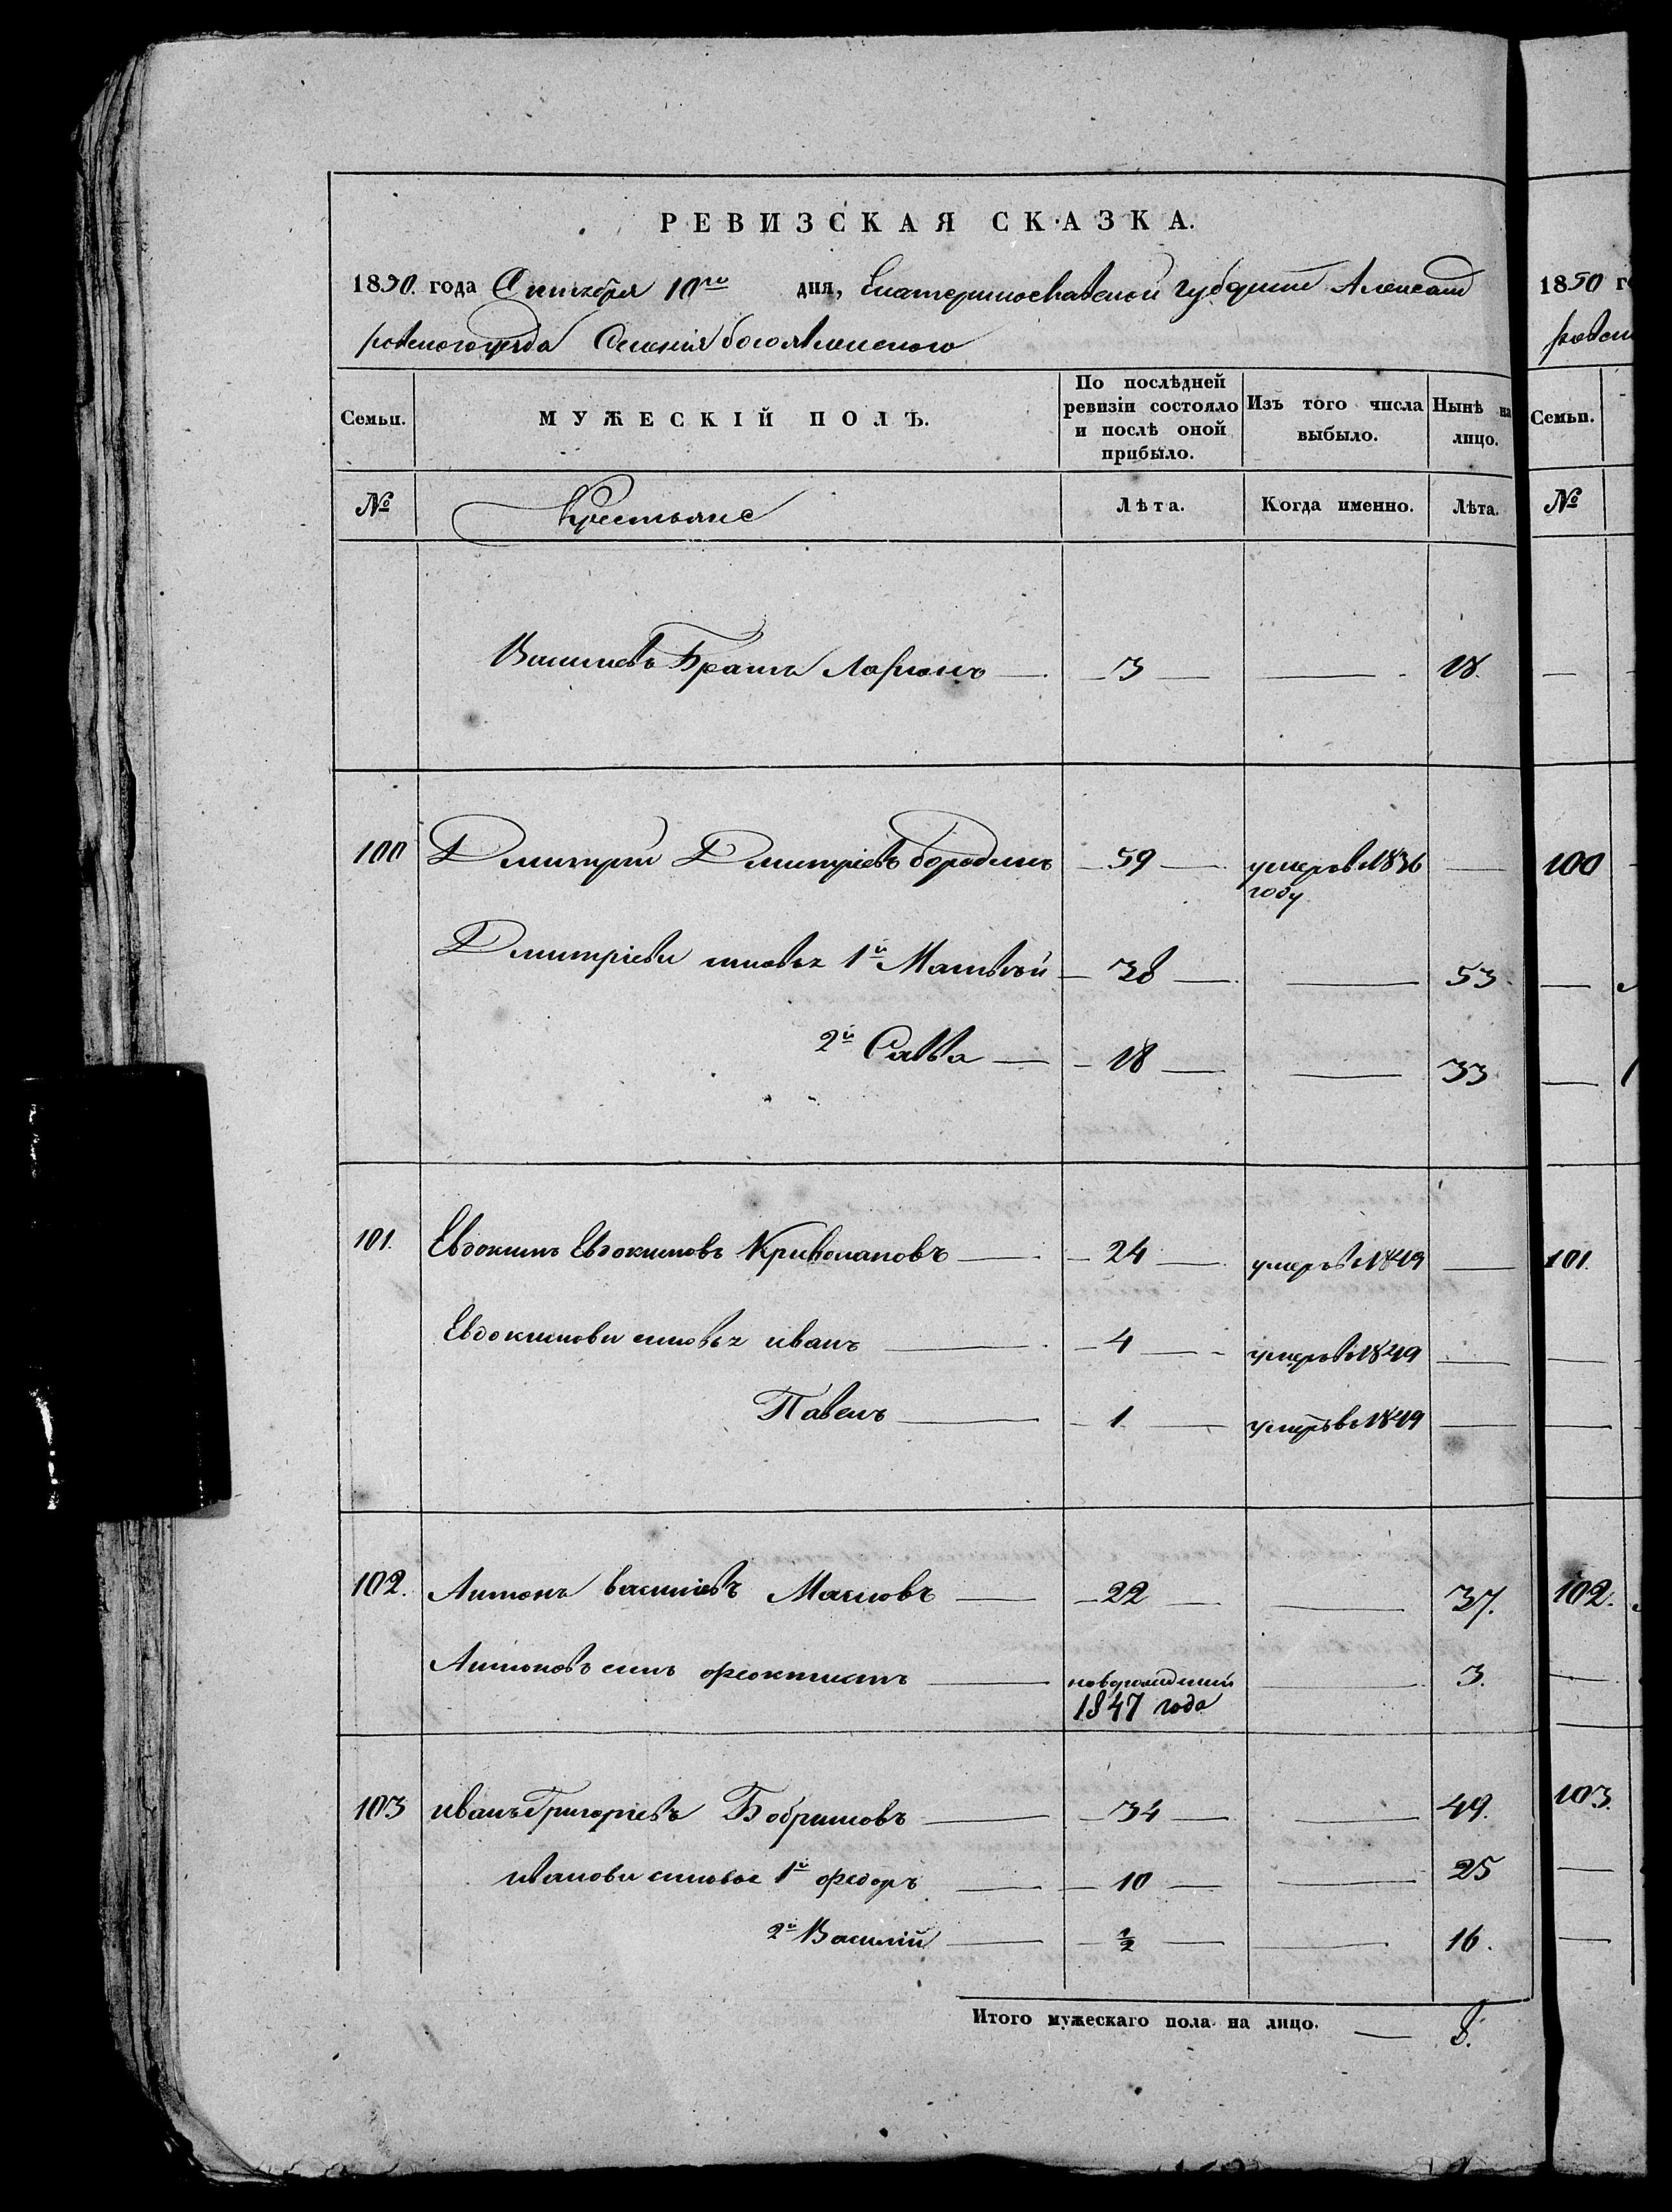 РЕВИЗСКАЯ СКАЗКА.
1850. года Сентября 10го дня, Екатеринославской губернии Александ
ровского уезда Селения богоявленского
Семьи. МУЖЕСКІЙ ПОЛЪ. По послѣдней ревизіи состояло и послѣ оной прибыло. Изъ того числа выбыло. Нынѣ на лицо.
№ Крестьяне Лѣта. Когда именно. Лѣта.
Васильевъ Братъ Ларионъ — 3 — — 18.
100 Дмитрий Дмитріевъ бородинъ — 59 — умеръ в 1836 году —
Дмитріеви сыновья 1й Матвѣй — 38 — — 53
2й Савва — 18 — — 33
101. Евдокимъ Евдокимовъ Криволаповъ — 24 — умеръ в 1849 —
Евдокимови сыновья иванъ — 4 — умеръ в 1849 —
Павелъ — 1 — умеръ в 1849 —
102. Антонъ васильевъ Масловъ — 22 — — 37.
Антоновъ сынъ феоктистъ — новорожденный 1847 года — 3.
103 иванъ Григорьевъ Бобришовъ — 34 — — 49.
ивановы сыновья 1й федоръ — 10 — — 25
2й Василій — ½ — — 16.
Итого мужескаго пола на лицо. — 8.
1850 го
ровск
Семьи.
№
100
101.
102.
103.